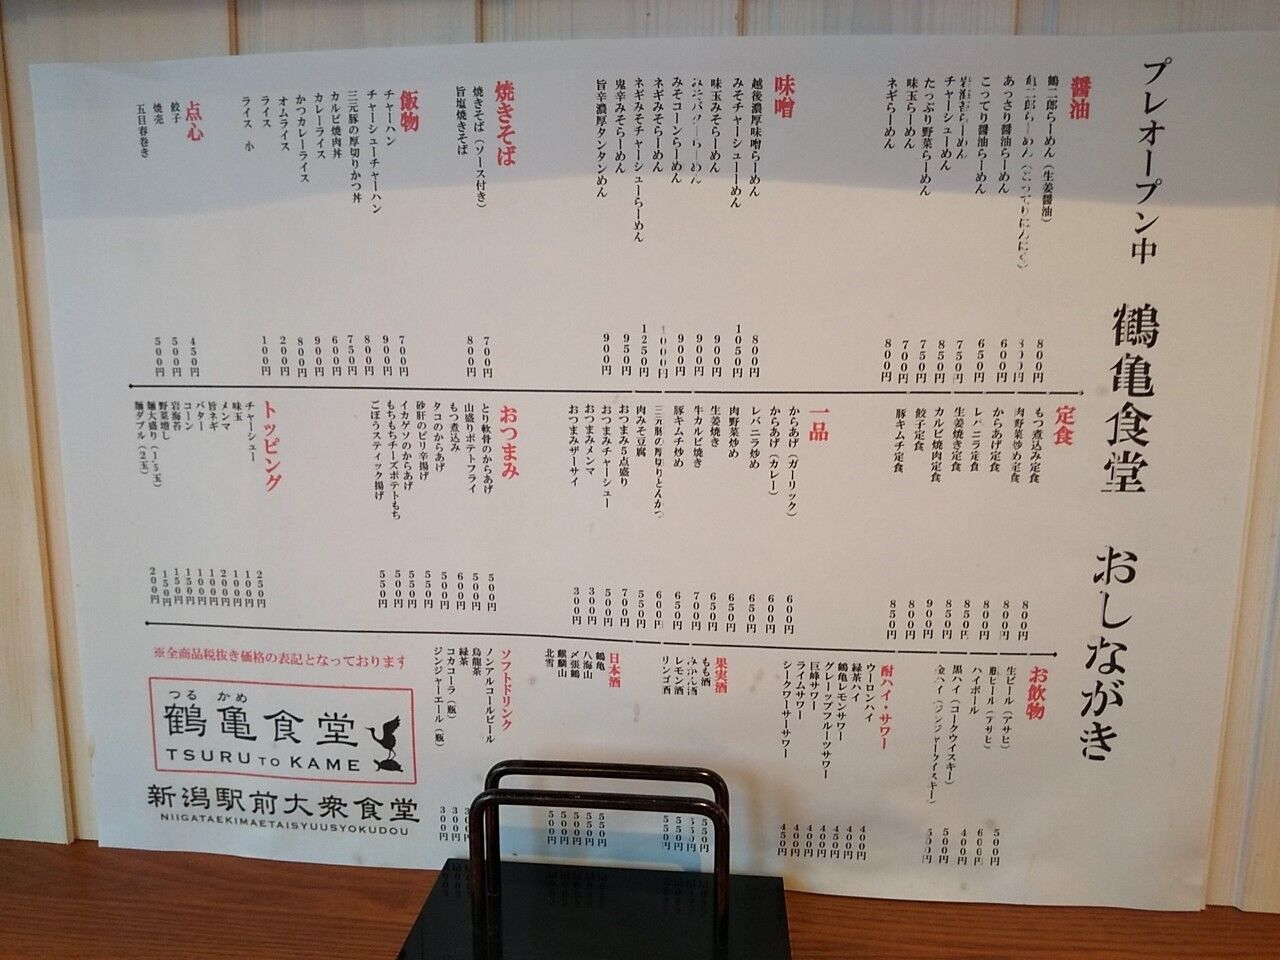 プレオープン中 鶴亀食堂 おしながき
醤油
鶴二郎らーめん（生姜醤油） 800円
亀二郎らーめん（こってりにんにく） 800円
あっさり醤油らーめん 600円
こってり醤油らーめん 650円
岩海苔らーめん 750円
チャーシューめん 850円
たっぷり野菜らーめん 750円
味玉らーめん 700円
ネギらーめん 800円
味噌
越後濃厚味噌らーめん 800円
みそチャーシューーめん 1050円
味玉みそらーめん 900円
みそバターらーめん 900円
みそコーンらーめん 900円
ネギみそらーめん 1000円
ネギみそチャーシューらーめん 1250円
鬼辛みそらーめん 950円
旨辛濃厚タンタンめん 900円
焼きそば
焼きそば（ソース付き） 700円
旨塩焼きそば 800円
飯物
チャーハン 700円
チャーシューチャーハン 900円
三元豚の厚切りかつ丼 800円
カルビ焼肉丼 750円
カレーライス 600円
かつカレーライス 900円
オムライス 800円
ライス 200円
ライス 小 100円
点心
餃子 450円
焼売 500円
五目春巻き 500円
定食
もつ煮込み定食 800円
肉野菜炒め定食 800円
からあげ定食 800円
レバニラ定食 850円
生姜焼き定食 850円
カルビ焼肉定食 900円
餃子定食 800円
豚キムチ定食 850円
一品
からあげ（ガーリック） 600円
からあげ（カレー） 600円
レバニラ炒め 650円
肉野菜炒め 650円
生姜焼き 650円
牛カルビ焼き 700円
豚キムチ炒め 650円
三元豚の厚切りとんかつ 600円
肉みそ豆腐 550円
おつまみ5点盛り 700円
おつまみチャーシュー 500円
おつまみメンマ 300円
おつまみザーサイ 300円
おつまみ
とり軟骨のからあげ 500円
山盛りポテトフライ 500円
もつ煮込み 600円
タコのからあげ 500円
砂肝のピリ辛揚げ 550円
イカゲソのからあげ 550円
もちもちチーズポテトもち 500円
ごぼうスティック揚げ 550円
トッピング
チャーシュー 250円
味玉 100円
メンマ 100円
旨ネギ 200円
バター 100円
コーン 100円
岩海苔 150円
野菜増し 150円
麺大盛り（1.5玉） 150円
麺ダブル（2玉） 200円
お飲物
生ビール（アサヒ） 500円
瓶ビール（アサヒ） 600円
ハイボール 400円
黒ハイ（コークウイスキー） 500円
金ハイ（ジンジャーウイスキー） 500円
酎ハイ・サワー
ウーロンハイ 400円
緑茶ハイ 400円
鶴亀レモンサワー 450円
グレープフルーツサワー 400円
巨峰サワー 400円
ライムサワー 400円
シークワーサーサワー 450円
果実酒
もも酒 550円
みかん酒 550円
レモン酒 550円
リンゴ酒 550円
日本酒
鶴亀 550円
八海山 550円
〆張鶴 550円
麒麟山 550円
北雪 500円
ソフトドリンク
ノンアルコールビール
烏龍茶
緑茶
コカコーラ（瓶） 300円
ジンジャーエール（瓶） 300円
※全商品税抜き価格の表記となっております
つる かめ
鶴亀食堂
TSURU TO KAME
新潟駅前大衆食堂
NIIGATAEKIMAETAISYUUSYOKUDOU